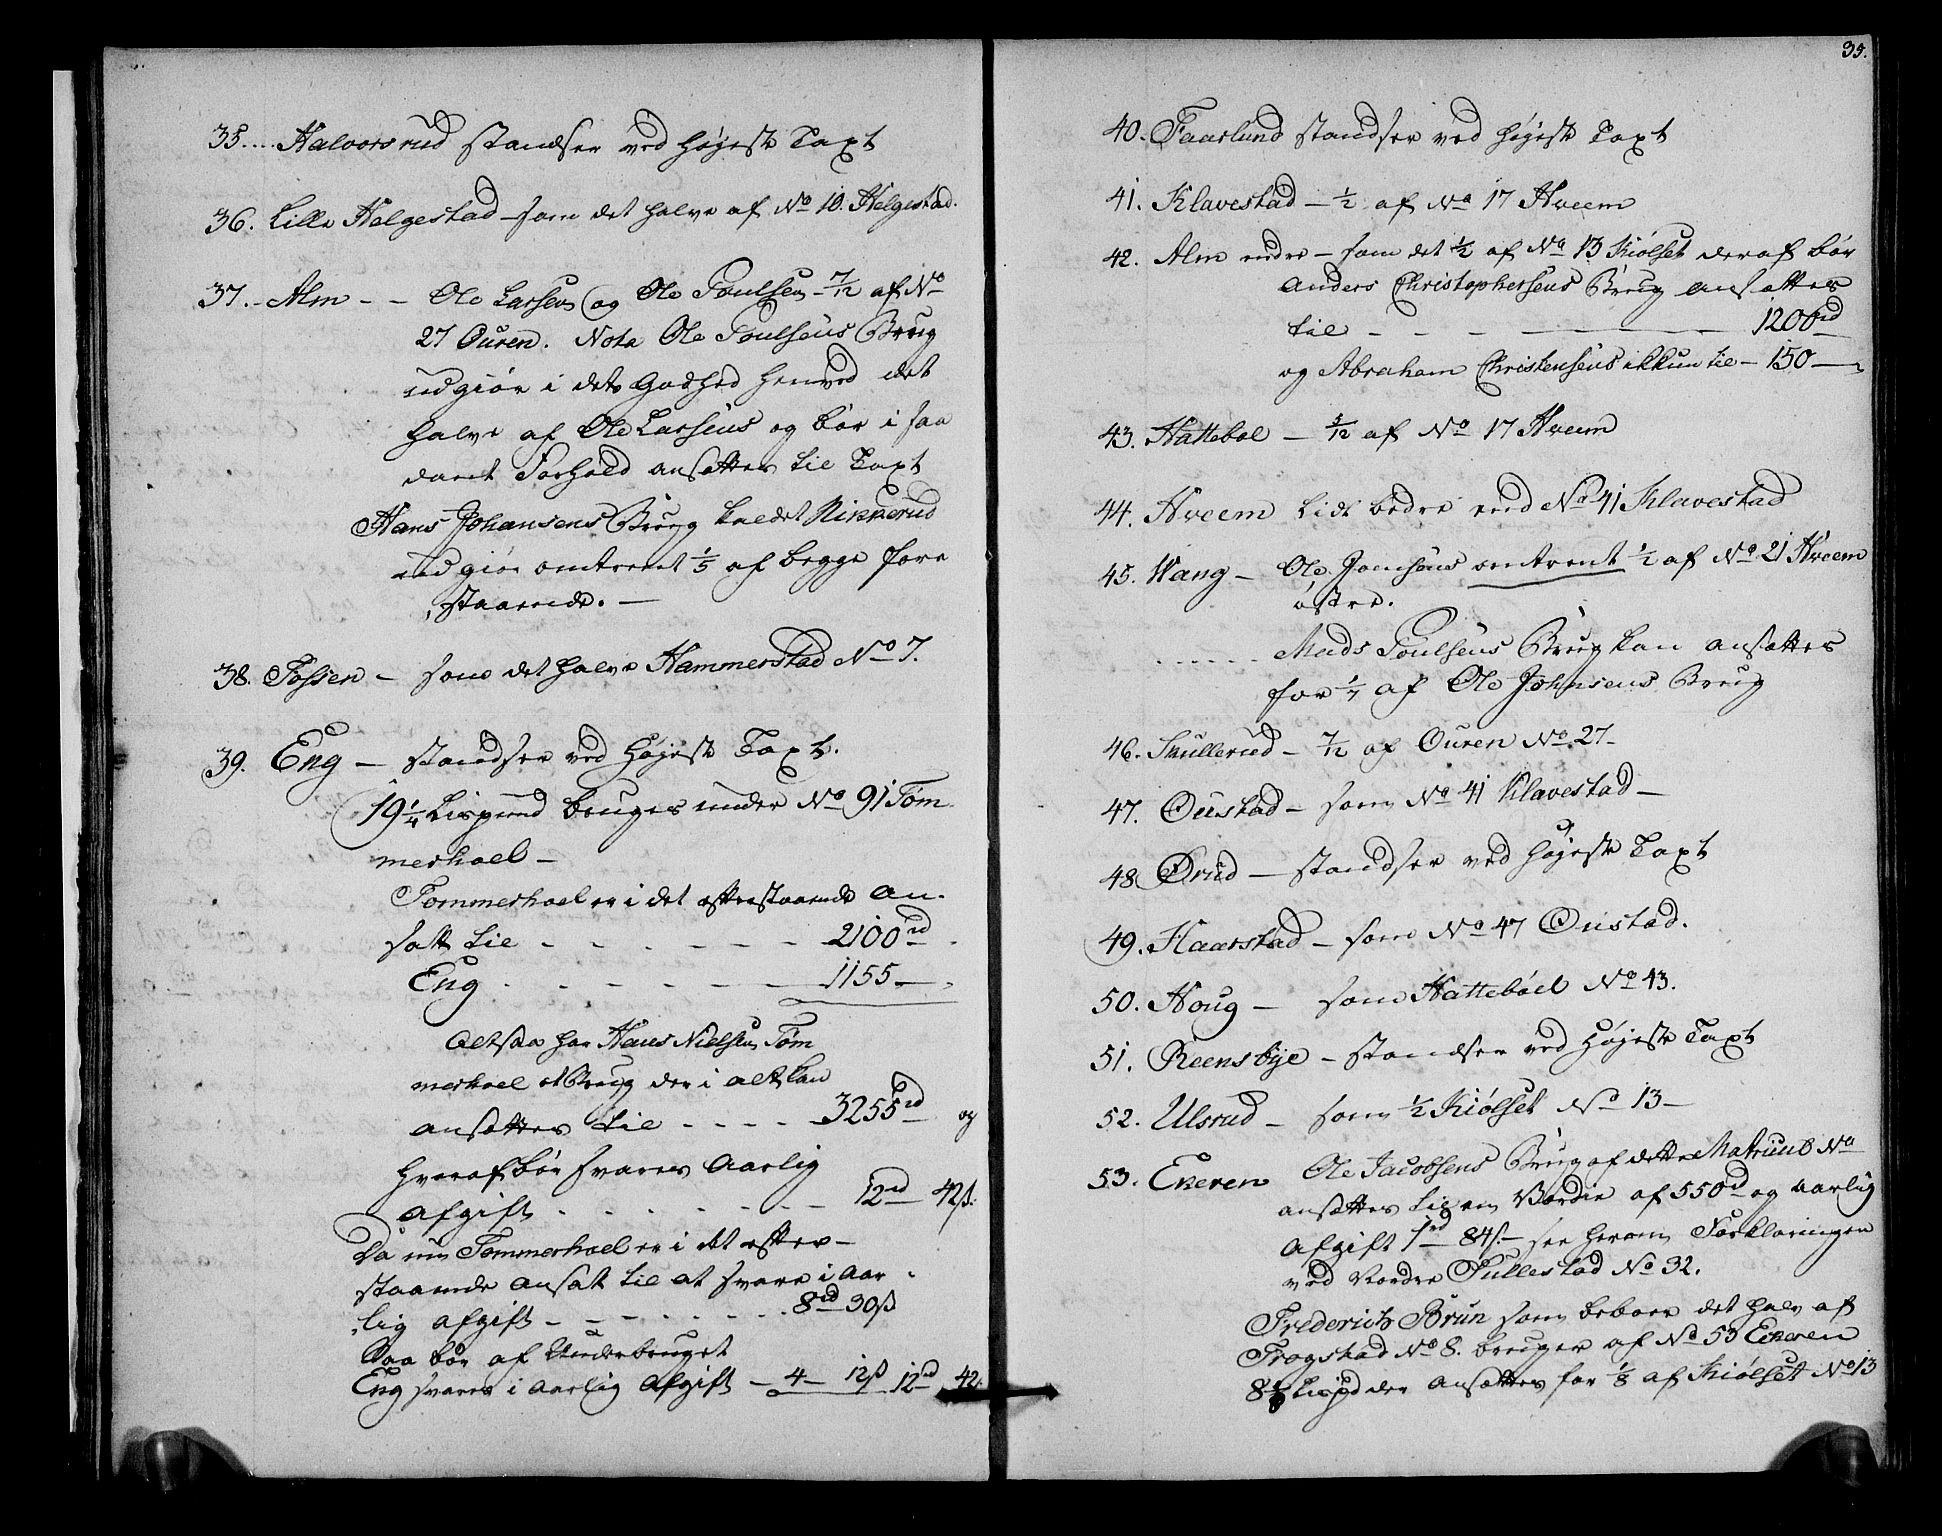 35.... Halvorsrud standser ved højeste Taxt
36. Lille Helgestad - som det halve af No 10. Helgestad.
37. - Alm - - Ole Larsen og Ole Poulsen - 7/12 af No
27 Ouren. Nota Ole Poulsens Brug
udgiør i dets Godhed henved det
halve af Ole Larsens og bør i saa
dant Forhold ansættes til Taxt
Hans Johansens Brug kaldet Rikkerud
udgiør omtrent 1/5 af begge fore
staaende. -
38. Fossen - som det halve Hammerstad No 7.
39. Eng - standser ved højeste Taxt.
19 1/4 Lispund bruges under No 91 Tøm
merhoel -
Tommerhoel er i det efterstaaende an-
satt til - - - - - - 2100 rd.
Eng - - - - - - 1155 -
Altsaa har Hans Nielsen Tøm
merhoel et Brug der i alt kan
ansættes til - - - - 3255 rd og
hvoraf bør svares Aarlig
Afgift - - - - - - - 12 rd 42 ß.
Da nu Tommerhoel er i det efter-
staaende ansat til at svare i Aar-
lig Afgift - - - - - - 8 rd 30 ß
Saa bør af Underbruget
Eng svares i Aarlig Afgift - 4 - 12 ß 12 rd 42.
35.
40. Faarlund standser ved højeste Taxt
41. Klavestad - 1/2 af No 17 Hveem
42. Alm nedre - som det 1/2 af No 13 Kiølset deraf bør
Anders Christophersens Brug ansættes
til - - - - - 1200 rd
og Abraham Christensens ikkun til - 150 -
43. Hattebøl - 5/12 af No 17 Hveem
44. Hveem lidt bedre end No 41 Klavestad
45. Wang - Ole Jonsens omtrent 1/2 af No 21 Hveem
østre.
...... Mads Poulsens Brug kan ansættes
for 1/7 af Ole Johnsens Brug
46. Skullerud - 7/12 af Ouren No 27 -
47. Oustad - som No 41 Klavestad -
48 Ørud - standser ved højeste Taxt
49. Haarstad - som No 47 Oustad.
50. Houg - som Hattebøel No 43.
51. Reensbye - standser ved højeste Taxt
52. Ulsrud - som 1/2 Kiølset No 13 -
53. Ekeren Ole Jacobsens Brug af dette Matricul No
ansættes til en Værdie af 550 rd og aarlig
Afgift 1 rd 84 ß - see herom Forklaringen
ved Nordre Sullestad No 32.
Friderich Brun som beboer det halve af
Trogstad No 8. bruger af No 53 Ekeren
Lispd der ansættes for 1/8 af Kiølset No 13